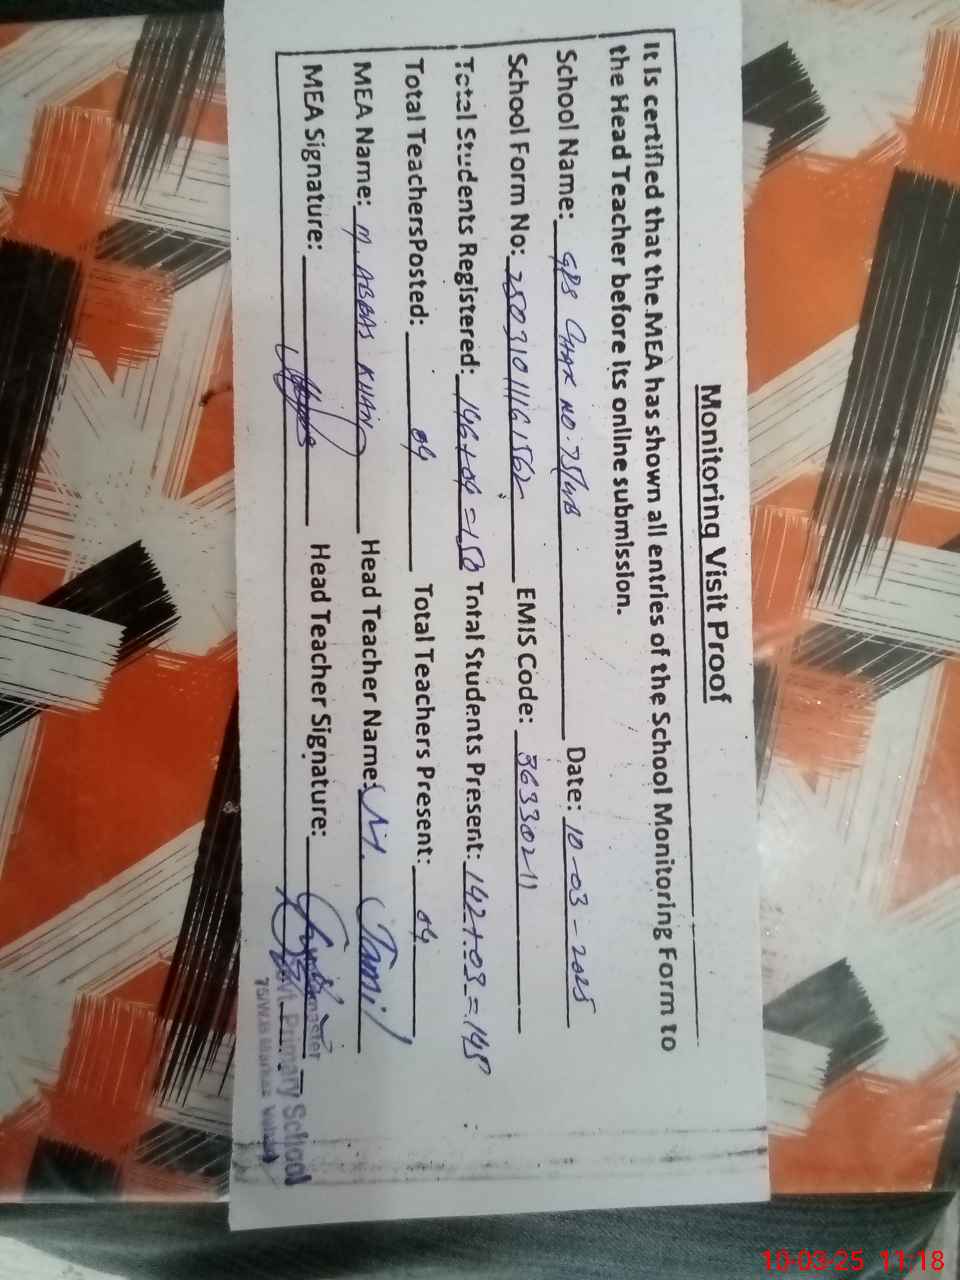 Monitoring Visit Proof
It is certified that the MEA has shown all entries of the School Monitoring Form to
the Head Teacher before its online submission.
School Name: GPS CHAK NO. 75/WB Date: 10-03-2025
School Form No: 25031011161562 EMIS Code: 36330211
Total Students Registered: 146+04=150 Total Students Present: 142+03=145
Total TeachersPosted: 04 Total Teachers Present: 04
MEA Name: M. ABBAS KHAN Head Teacher Name: M. Jamil
MEA Signature: Head Teacher Signature:
Govt. Primary School
75/W.B
10-03-25 11:18